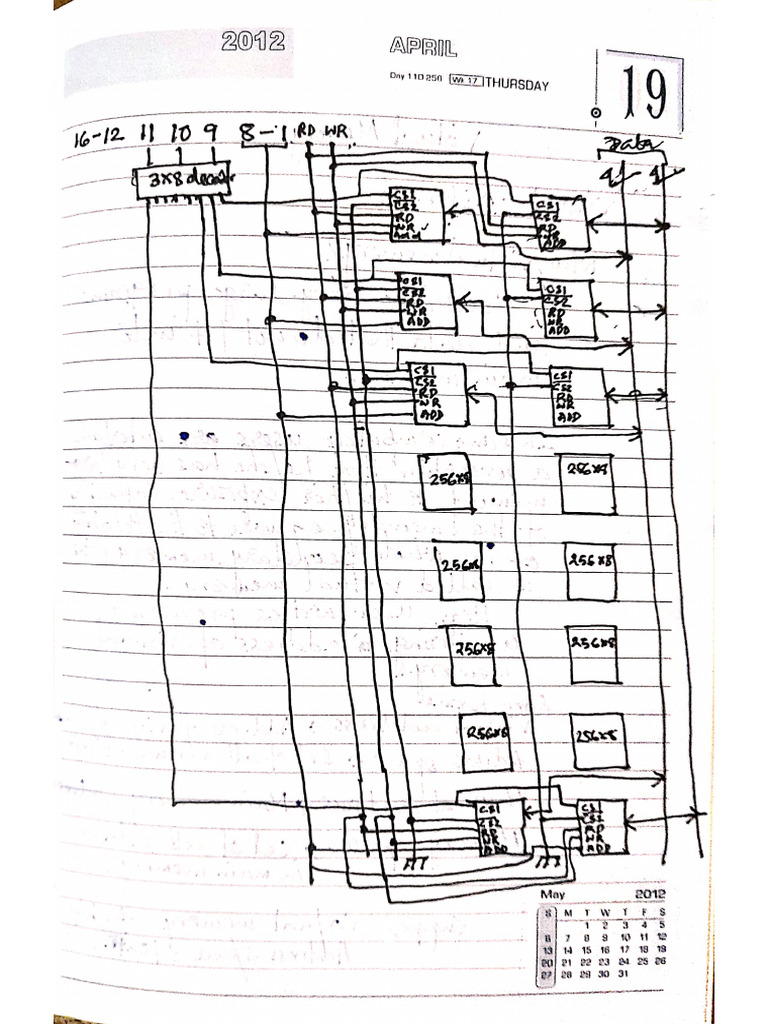 2012
APRIL
Day 110 256 Wk 17 THURSDAY
19
16-12 11 10 9 8-1 RD WR
Data
3x8 decoder
4 4
CS1
CS2
RD
WR
Add
CS1
CS2
RD
WR
ADD
CS1
CS2
RD
WR
ADD
CS1
CS2
RD
WR
ADD
CS1
CS2
RD
WR
ADD
CS1
CS2
RD
WR
ADD
256x8
256x8
256x8
256x8
256x8
256x8
256x8
256x8
CS1
CS2
RD
WR
ADD
CS1
CS2
RD
WR
ADD
May 2012
S M T W T F S
1 2 3 4 5
6 7 8 9 10 11 12
13 14 15 16 17 18 19
20 21 22 23 24 25 26
27 28 29 30 31